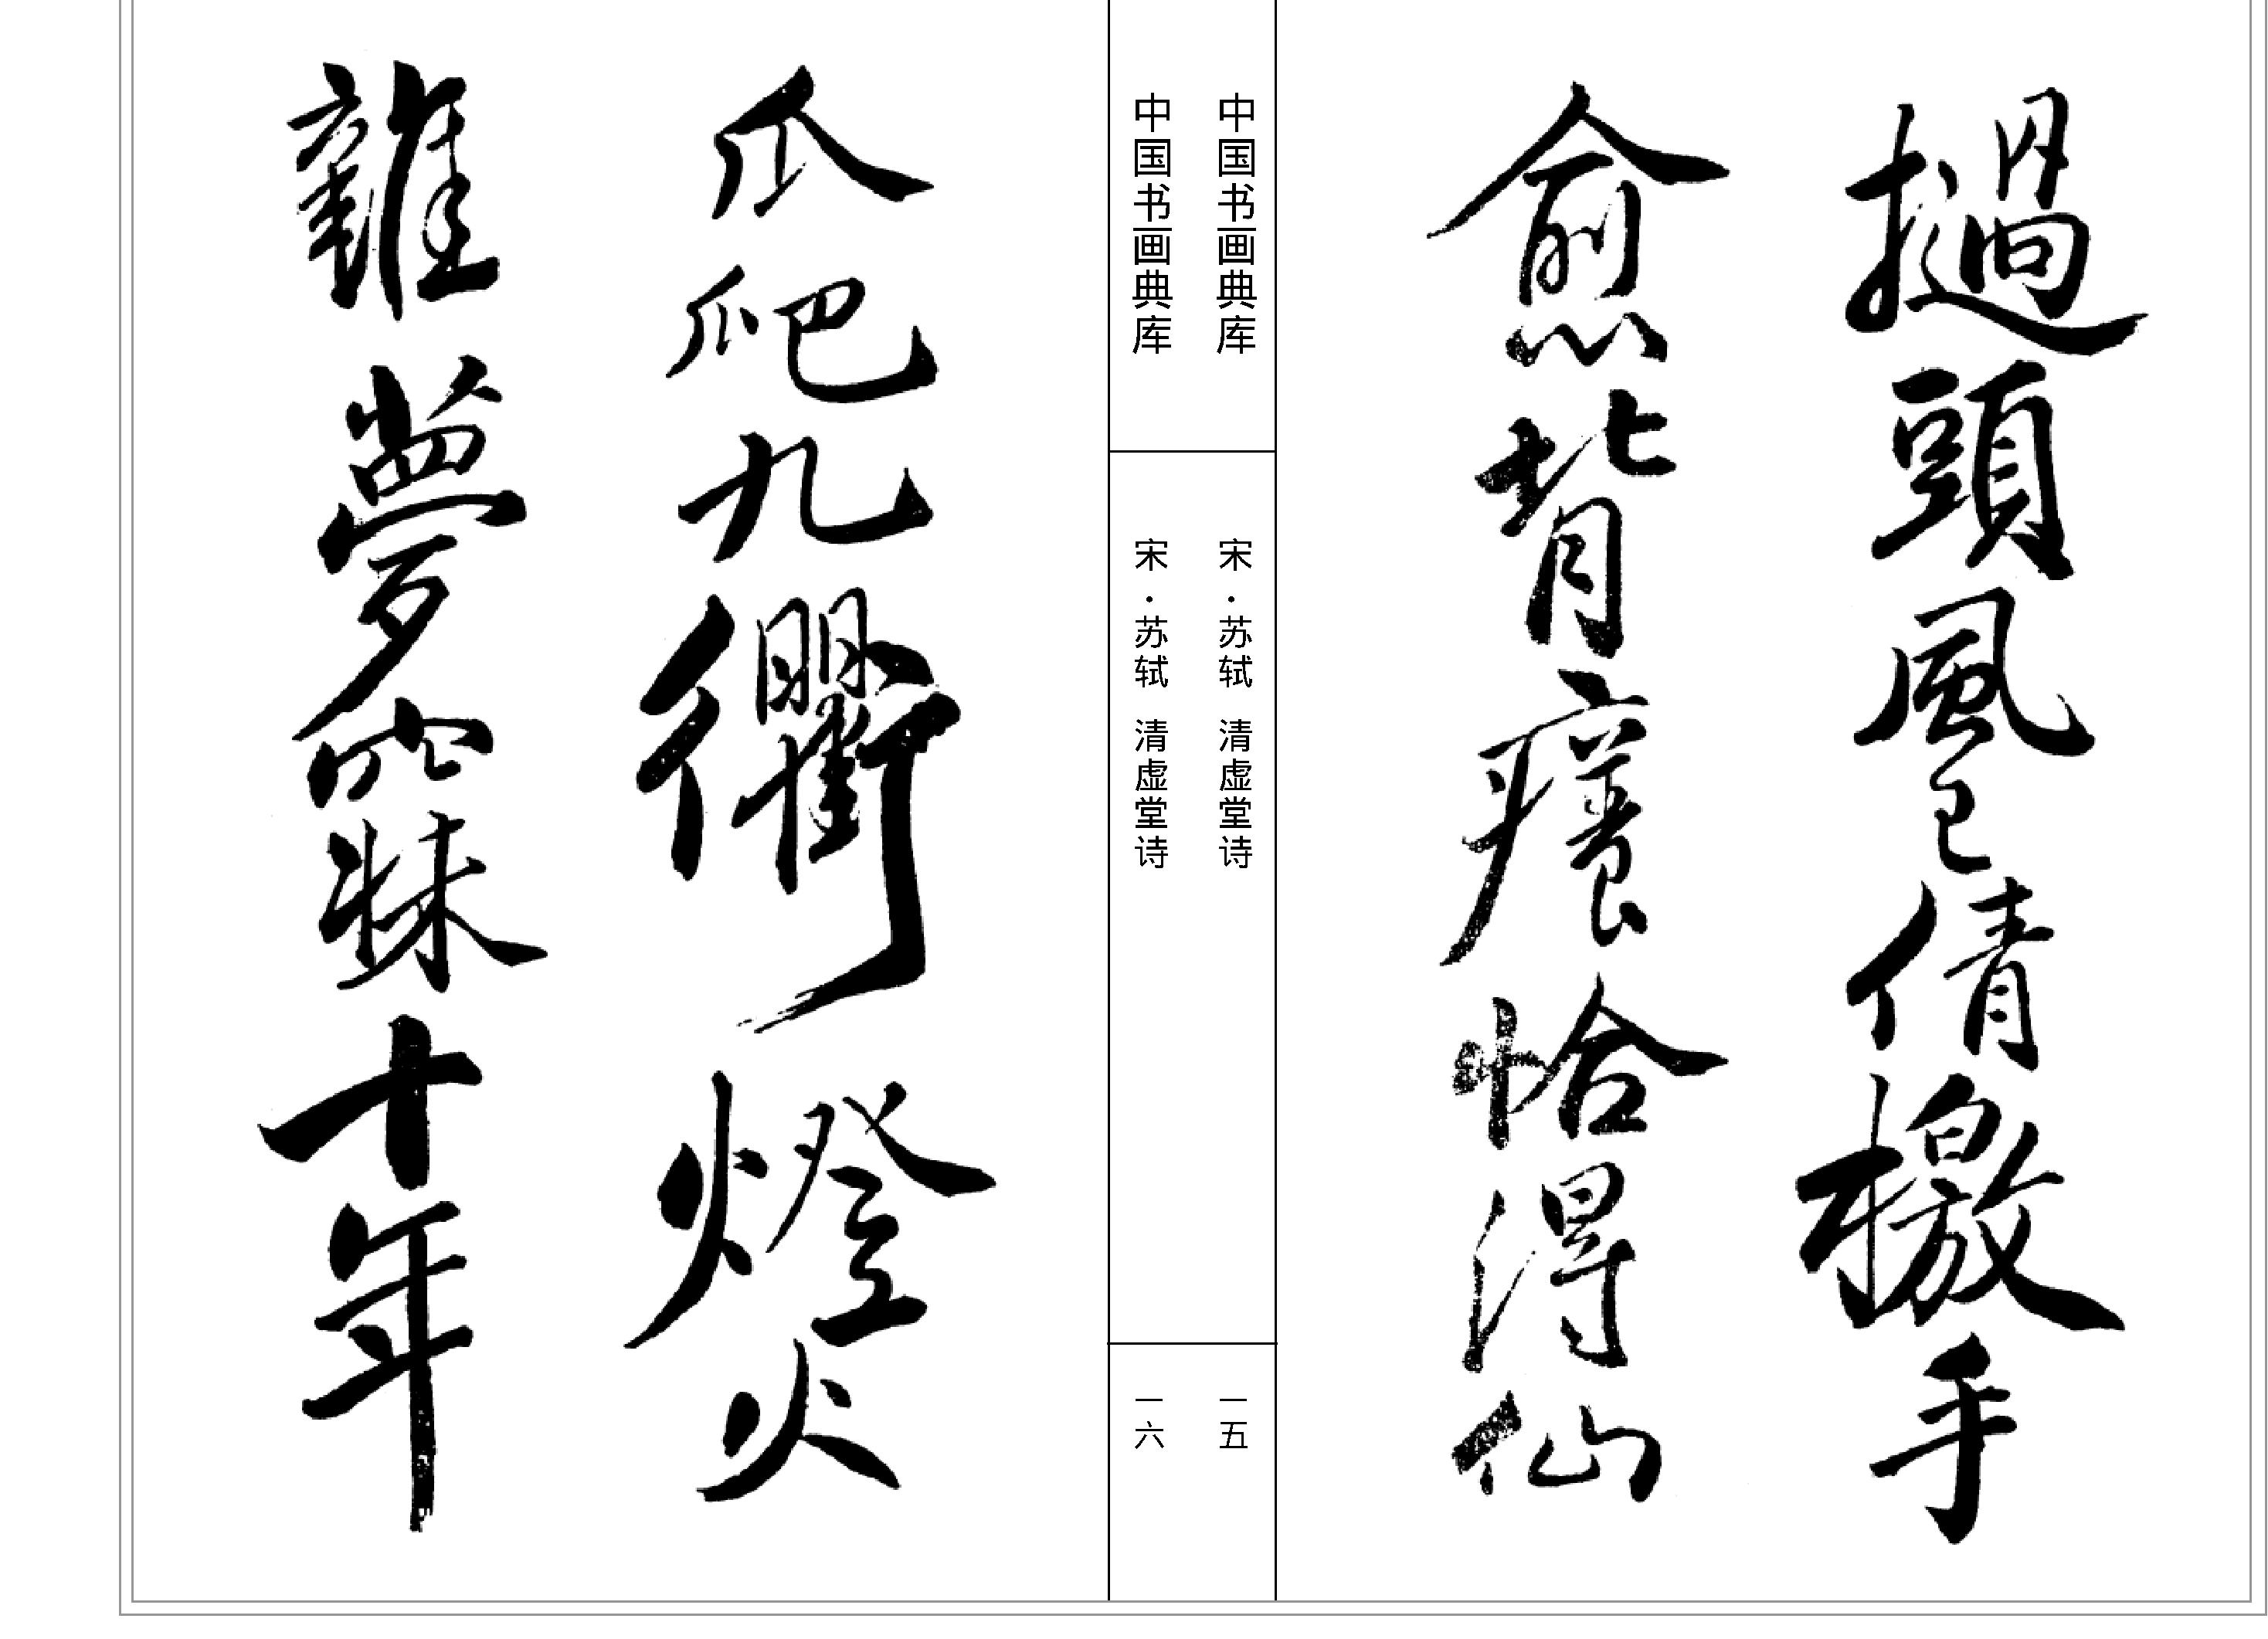 撾頭風已倩檄手
愈背癢恰得仙
中国书画典库
宋·苏轼 清虚堂诗
一五
中国书画典库
宋·苏轼 清虚堂诗
一六
爪爬九衢燈火
雜夢寐十年